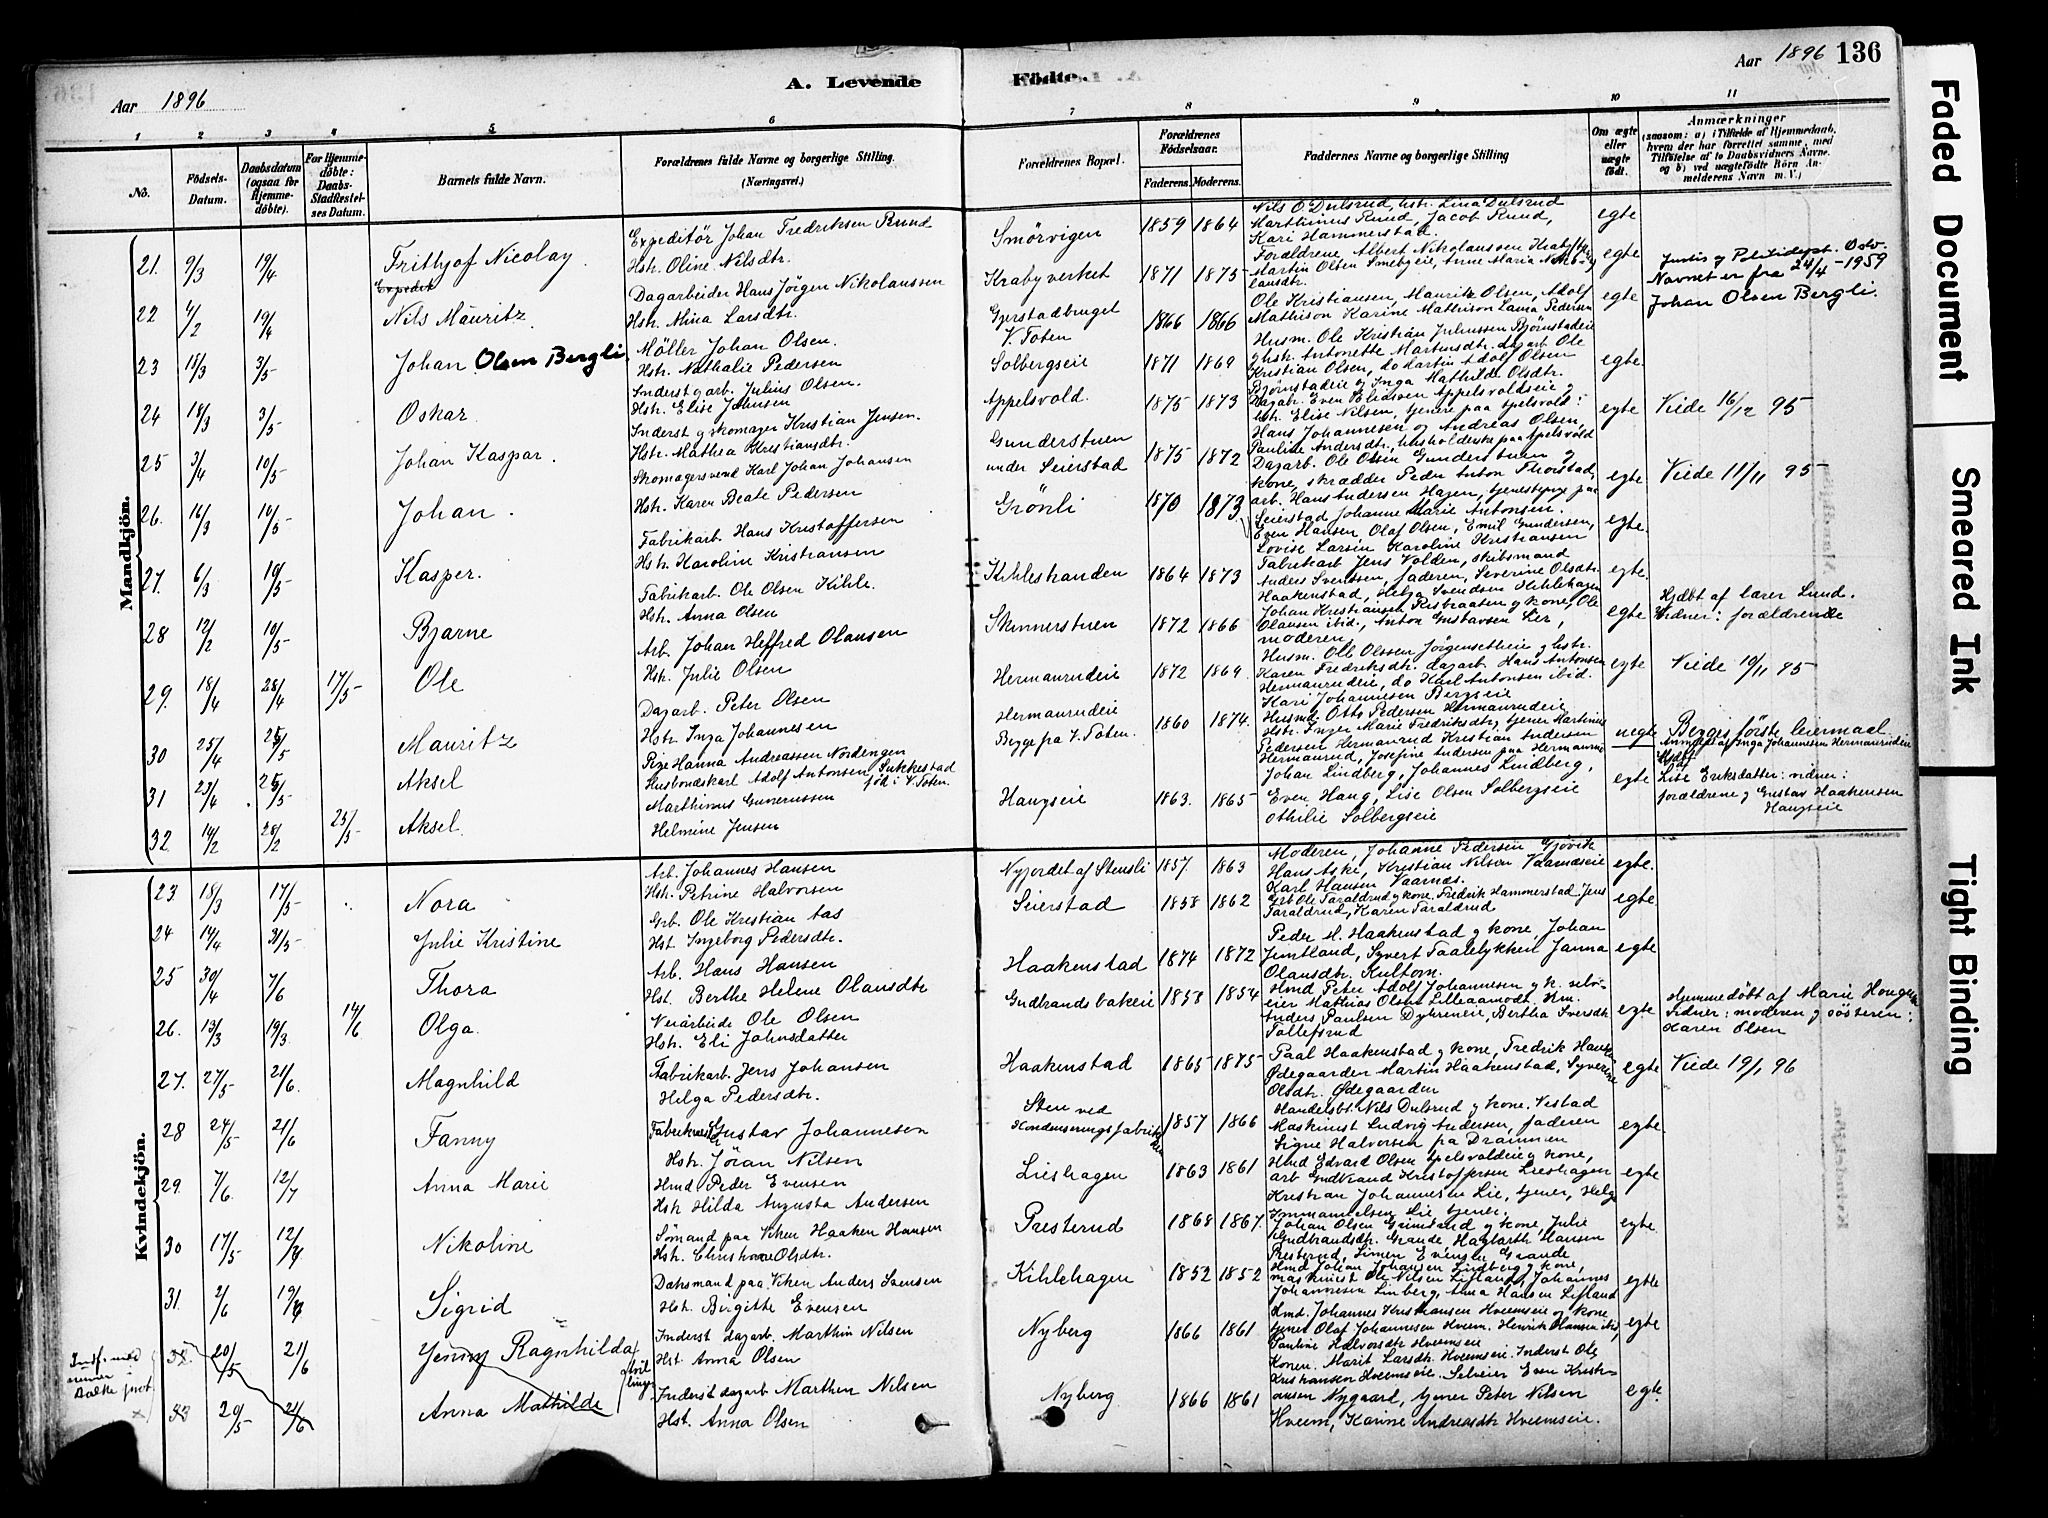 Aar 1896
A. Levende
Födte.
Aar 1896 136
1 2 3 4 5 6 7 8 9 10 11
No.
Födsels-
Datum.
Daabsdatum
(ogsaa for
Hjemme-
döbte).
For Hjemme-
döbte:
Daabs-
Stadfæstel-
ses Datum.
Barnets fulde Navn.
Forældrenes fulde Navne og borgerlige Stilling.
(Næringsvei.)
Forældrenes Bopæl.
Forældrenes
Födselsaar.
Faderens. Moderens.
Faddernes Navne og borgerlige Stilling
Om ægte
eller
uægte
født.
Anmærkninger
(saasom: a) i Tilfælde af Hjemmedaab,
hvem der har forrettet samme, med
Tilføielse af to Daabsvidners Navne,
og b) ved uægtefödte Börn An-
melderens Navn m. V.)
Mandkjön.
21. 9/3 19/4 Frithjof Nicolay
Expeditör Johan Fredriksen Ruud
Hstr. Oline Nilsdtr.
Smörvigen 1859 1864
Nils O. Dulsrud, hstr. Lina Dulsrud
Marthinus Ruud, Jacob Ruud,
Kari Hammerstad.
egte
22 4/2 19/4 Nils Mauritz
Dagarbeider Hans Jörgen Nikolaussen
Hstr. Mina Larsdtr.
Krabyverket 1871 1875
Forældrene, Albert Nikolaussen
Martin Olsen Smebyeie, Anne Maria
lausdtr.
egte
Justis og Politidept. Oslo.
Navnet er fra 24/4-1959
Johan Olsen Bergli.
23 15/3 3/5 Johan Olsen Bergli
Möller Johan Olsen.
Hstr. Nathalie Pedersen
Gjerstadbruget
V. Toten 1866 1866
Ole Kristiansen, Mauritz Olsen, Adolf
Mathison Karine Mathison Laura Pedersen
egte
24 18/3 3/5 Oskar.
Inderst og arb. Julius Olsen.
Hstr. Elise Johnsen
Solbergseie 1871 1869
Husm. Ole Kristian Juliussen Bjørnstadeie
og hstr. Antonette Martinsdtr. dagarb Ole
Kristian Olsen, do Martin Adolf Olsen
Bjørnstadeie og Inga Mathilde Olsdtr.
egte.
25 3/4 10/5 Johan Kaspar.
Inderst og skomager Kristian Jensen.
Hstr. Mathea Kristiansdtr.
Appelsvold. 1875 1873
Dagar. Even Eliassen Appelsvoldseie og
hstr. Elise Nilsen, tjenere paa Apelsvold:
Hans Johannesen og Andreas Olsen,
Pauline Andersdtr. husholderske paa Apelsvold
egte Viede 16/12 95
26. 16/3 10/5 Johan.
Skomagersvend Karl Johan Johansen
Hstr. Karen Beate Pedersen
Gunderstuen
under Seierstad 1875 1872
Dagarb. Ole Olsen Gunderstuen og
kone, skrædder Peder Anton Thorstad,
arb. Hans Andersen Hagen, tjenestepige paa
Seierstad Johanne Marie Antonsen.
egte Viede 11/11 95
27. 6/3 10/5 Kasper.
Fabrikarb. Hans Kristoffersen
Hstr. Karoline Kristiansen
Grönli 1870 1873
Even Hansen, Olaf Olsen, Emil Gundersen,
Lovise Larsen Karoline Kristiansen
egte.
28 12/2 10/5 Bjarne
Fabrikarb. Ole Olsen Kihle.
Hstr. Anna Olsen
Kihleshanden 1864 1873
Fabrikarb Jens Volden, skibsmand
Anders Svendsen, faderen, Severine Olsdtr.
Haakenstad, Helga Svendsen Kihlehagen
egte.
29. 18/4 28/4 17/5 Ole
Arb. Johan Helfred Olausen
Hstr. Julie Olsen
Skinnerstuen 1872 1866
Johan Kristiansen Risbraaten og kone, Ole
Olausen ibid., Anton Gustavsen Lier,
moderen.
egte
Hjdøbt af lærer Lund.
Vidner: forældrene
30 25/4 25/5 Mauritz
Dagarb. Peter Olsen
Hstr. Inga Johannesen
Hermanrudeie 1872 1869
Husm. Ole Olssen Jørgensetheie og hstr.
Karen Fredriksdtr. dagarb. Hans Antonsen
Hermanrudeie, do Karl Antonsen ibid.
Kari Johannesen Bergseie
egte Viede 10/11 95
31 23/4 25/5 Aksel
Pige Hanna Andreassen Nordengen
Husbondskarl Adolf Antonsen Sukkestad
föd i V. Toten.
Hermanrudeie
Begge fra V. Toten. 1860 1874.
Husmd. Otto Pedersen Hermanrudeie
Hstr. Inger Marie Fredriksdtr, tjener Martinus
Pedersen Hermanrud Kristian Andersen
Hermanrud, Josefine Andersen paa Hermanrud
uegte
Begges første leiermaal.
Anmeldt af Inga Johannesen Hermanrudeie
32. 14/2 28/2 25/5 Aksel
Marthinus Gunerussen
Helmine Jensen
Haugseie 1863. 1865
Johan Lindberg, Johannes Lindberg,
Even Haug, Lise Olsen Solbergseie
Othilie Solbergseie
egte
Lise Eriksdatter: vidner:
forældrene og Gustav Haakensen
Haugseie
Kvindekjön.
23 18/3 17/5 Nora
Arb. Johannes Hansen
Hstr. Petrine Halvorsen
Nyjordet af Stensli 1857. 1863
Moderen, Johanne Pedersen Gjövik
Hans Aske, Kristian Nilsen Vaarnæseie
Karl Hansen Vaarnæs.
egte.
24 14/4 31/5 Julie Kristine
Grb. Ole Kristian Aas
Hst. Ingeborg Pedersdtr.
Seierstad 1858 1862
Grb Ole Taraldrud og kone. Fredrik Hammerstad, Jens
Taraldrud, Karen Taraldrud
egte.
25 30/4 7/6 Thora
Arb. Hans Hansen
Hst. Berthe Helene Olausdtr
Haakenstad 1874 1872
Peder M. Haakenstad og kone, Johan
Jemtland, Syvert Taalelykken Janna
Olausdtr. Kultom.
egte
26. 13/3 19/3. 14/6 Olga.
Veiarbeide Ole Olsen
Hstr. Eli Johnsdatter
Gudbrandsbakeie 1853 1854
Hmd Peter Adolf Johannesen og k. selv-
eier Mathias Olsen Lilleaamodt. Hm.
Anders Paulsen Dyhreneie, Bertha Sversdtr
Tollefsrud
egte
Hjemmedöbt af Marie
Vidner: moderen og søsteren:
Karen Olsen
27. 27/5 21/6. Magnhild
Fabrikarb. Jens Johansen
Helga Pedersdtr.
Haakenstad 1865 1875
Paal Haakenstad og kone, Fredrik Hansen
Ødegaarden Martin Haakenstad, Syverine
Olsdtr. Ødegaarden
egte Viede 19/1 96
28 24/5 21/6 Fanny
Gustav Johannesen
Hstr. Jöran Nilsen
Sten ved
Kondenseringsfabrikken 1857 1866
Handelsbt. Nils Dulsrud og kone. Vestad
Maskinist Ludvig Andersen, faderen
Signe Halvorsen fra Drammen
egte.
29. 7/6. 12/7 Anna Marie
Hmd. Peder Evensen
Hstr Hilda Augusta Andersen
Lieshagen 1863 1861
Hmd Edvard Olsen Apelsvoldeie og kone,
arb Gudbrand Kristoffersen Lieshagen
Kristian Johannesen Lie, tjener, Helga
Immanuelsen Lie tjener.
egte
30 17/5 12/7 Nikoline
Sömand paa Viken Haaken Hansen
Hst. Christiane Olsdtr.
Presterud 1868 1867.
Johan Olsen Grimsrud og kone, Julie
Gudbrandsdtr. Grande Haglarth Hansen
Presterud, Simen Evensen Grande
egte.
31. 2/6 19/7 Sigrid
Dæksmand paa Viken Anders Samsen
Hst. Birgitte Evensen
Kihlehagen 1852 1852
Hmd Johan Johansen Lindberg og kone,
maskinist Ole Nilsen Lifland, Johannes
Johannesen Linberg, Anna Hansen Lifland
egte
32. 20/5 21/6 Jenny Ragnhilda
Inderst dagarb. Marthin Nilsen
Hst. Anna Olsen
Nyberg 1866 1861
Hmd. Johannes Kristiansen Hveemseie og kone
tjener Olaf Johannesen Hveem. Henrik Olausen ibid,
Pauline Halvorsdtr Hveemseie
egte
33 20/5 21/6 Anna Mathilde
Tvil
linger
Inderst dagarb Marthin Nilsen
Hst. Anna Olsen
Nyberg 1866 1861
Konen Marit Larsdtr. Hveemseie. Inderst Ole
Kristiansen Hveemseie. Selveier Even Kristi-
ansen Nygaard, tjener Peter Nilsen
Hveem, Karine Andreasdtr Hveemseie.
egte.
Balke prot.
Faded Document
Smeared Ink
Tight Binding